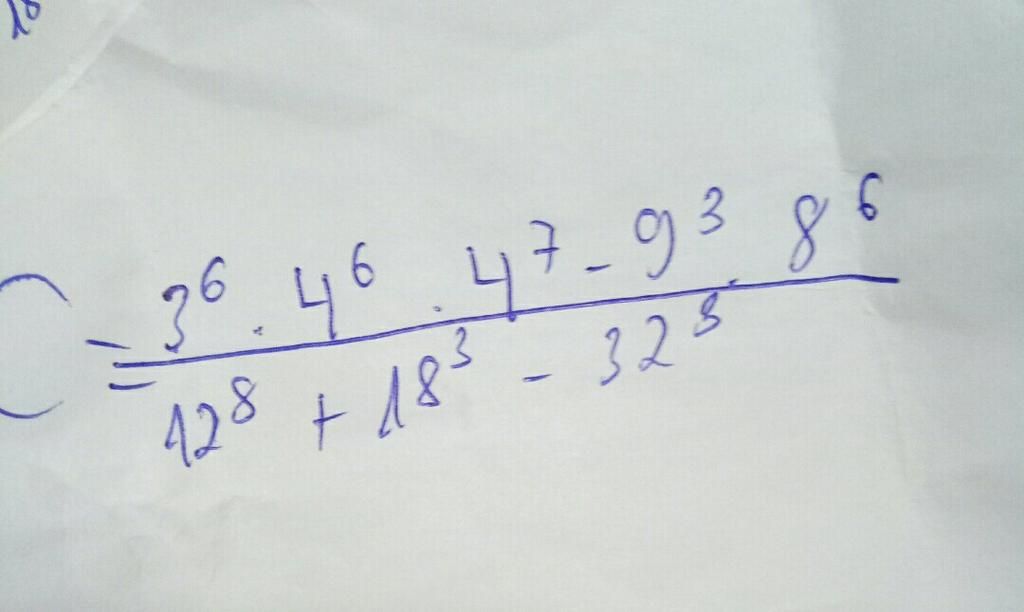 18
C = 3⁶ . 4⁶ . 4⁷ - 9³ . 8⁶
12⁸ + 18³ - 32⁸